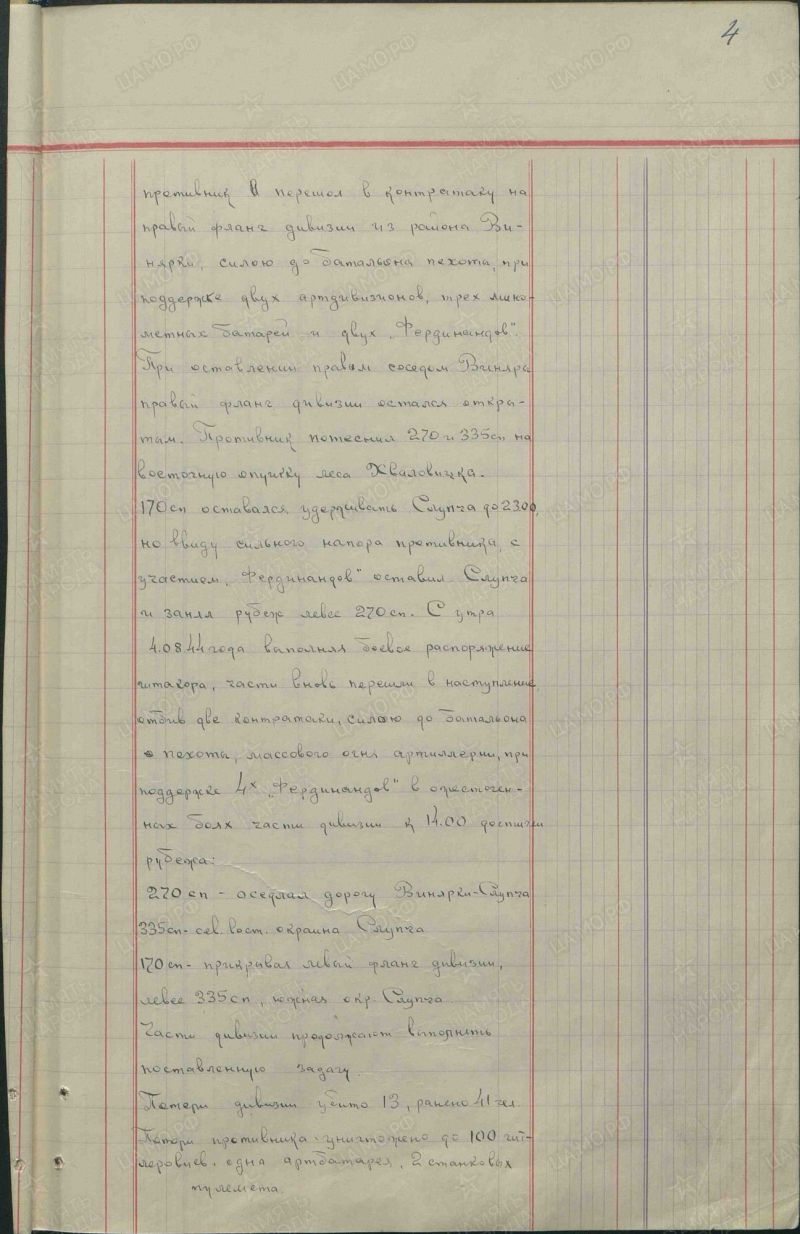 4
противник перешол в контратаку на
правый фланг дивизии из района Ви-
нярки, силою до батальона пехоты, при
поддержке двух артдивизионов, трех мино-
метных батарей и двух „Фердинандов".
При оставлении правым соседом Виняры
правый фланг дивизии остался откры-
тым. Противник потеснил 270 и 335 сп на
восточную опушку леса Хваловицка.
170 сп оставался удерживать Слупча до 23.00,
но ввиду сильного напора противника, с
участием „Фердинандов" оставил Слупча
и занял рубеж левее 270 сп. С утра
4.08.44 года выполняя боевое распоряжение
штакора, части вновь перешли в наступление
отбив две контратаки, силою до батальона
пехоты, массового огня артиллерии, при
поддержке 4х „Фердинандов" в ожесточен-
ных боях части дивизии к 14.00 достигли
рубежа:
270 сп - оседлал дорогу Винярки-Слупча
335 сп - сев. вост. окраина Слупча
170 сп - прикрывая левый фланг дивизии,
левее 335 сп, южная окр. Слупча
Части дивизии продолжают выполнять
поставленную задачу.
Потери дивизии убито 13, ранено 41 чел
Потери противника: уничтожено до 100 гит-
леровцев, одна артбатарея, 2 станковых
пулемета.